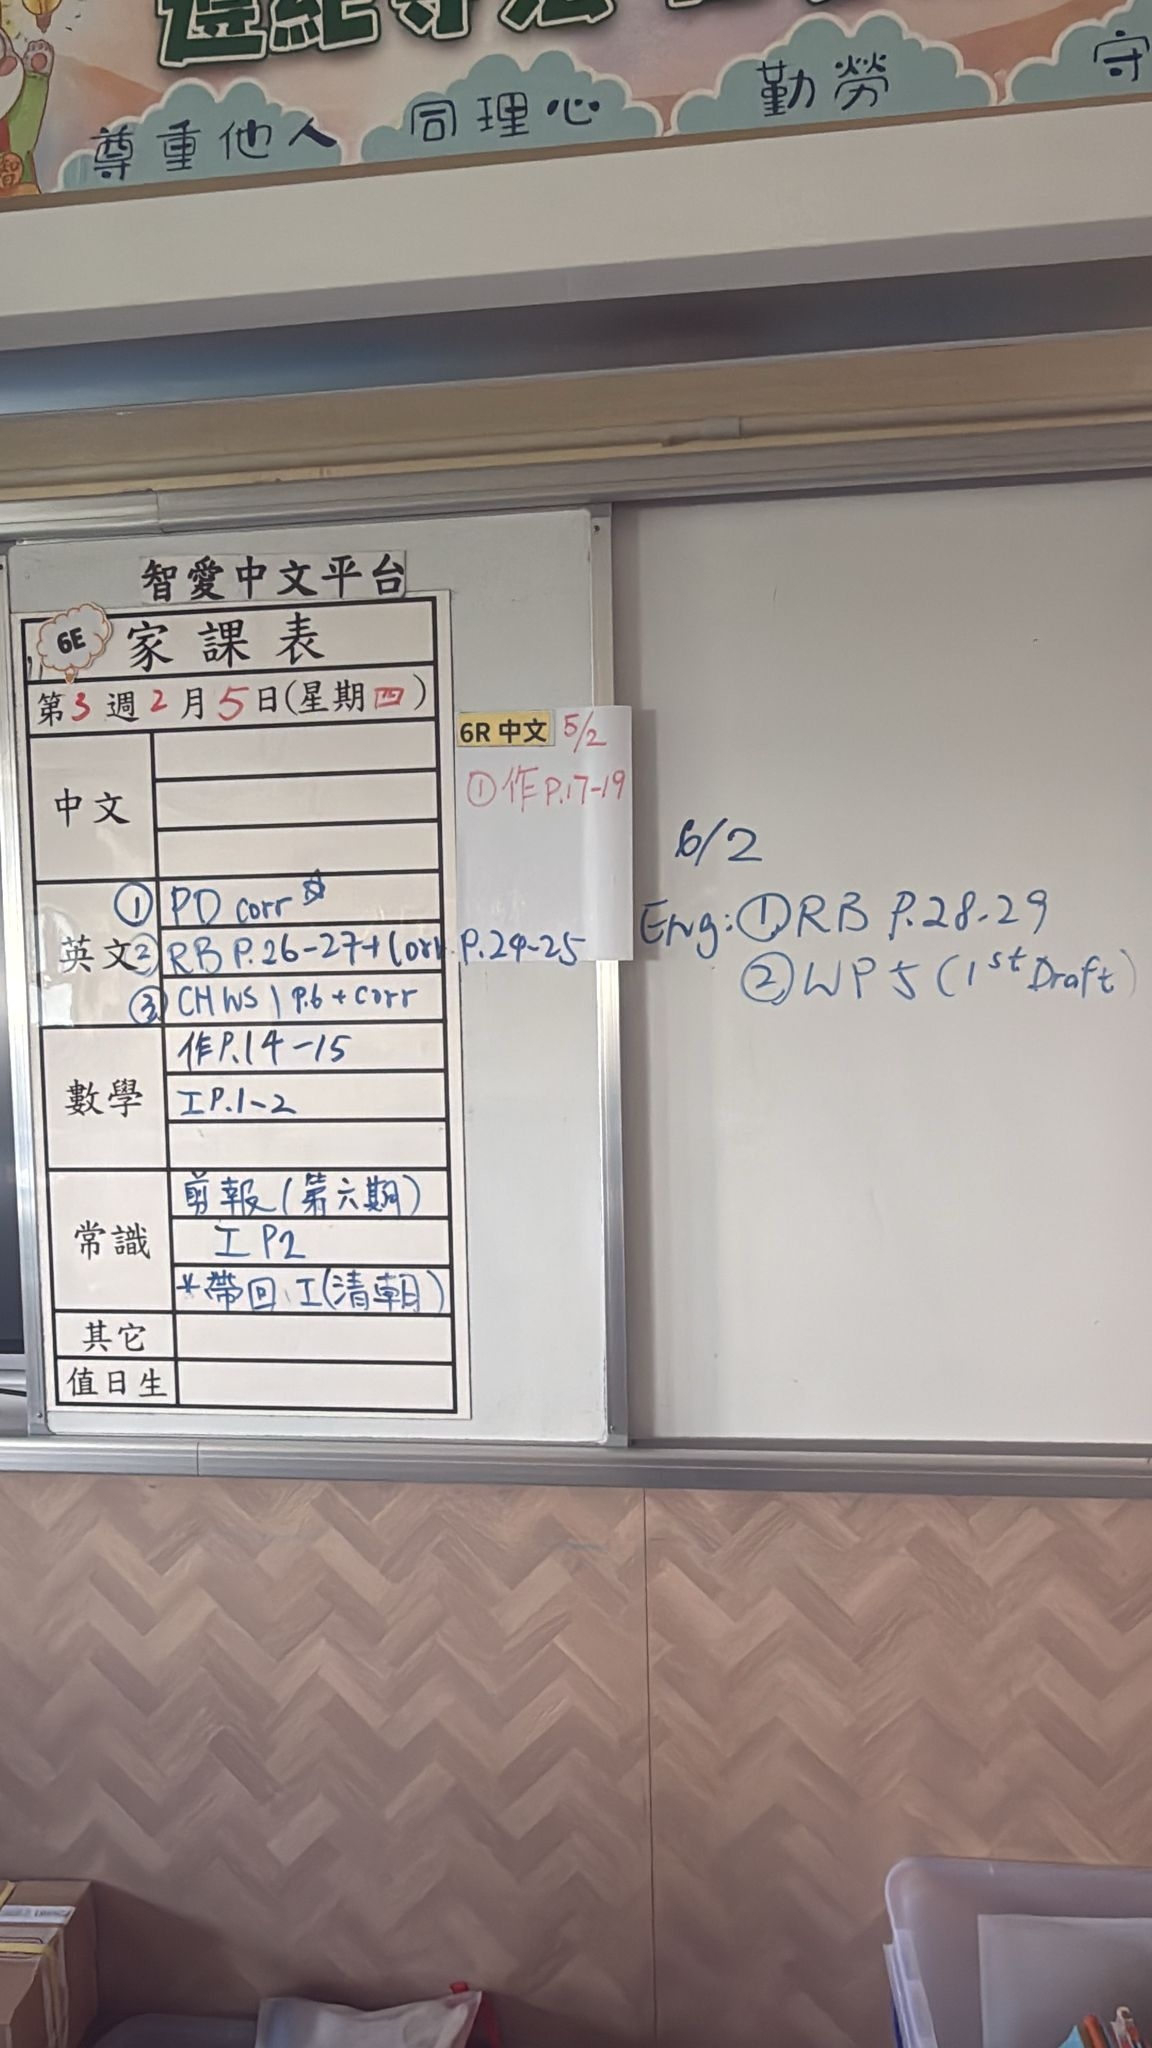 遵紀守法
尊重他人
同理心
勤勞
守
智愛中文平台
6E
家課表
第3週2月5日(星期四)
中文
英文
① PD corr ☆
② RB P.26-27+Corr P.24-25
③ CHWS 1 P.6 + corr
數學
作P.14-15
工P.1-2
常識
剪報(第六期)
工P2
*帶回、工(清朝)
其它
值日生
6R 中文 5/2
①作P.17-19
6/2
Eng: ① RB P.28-29
② WP 5 (1st Draft)